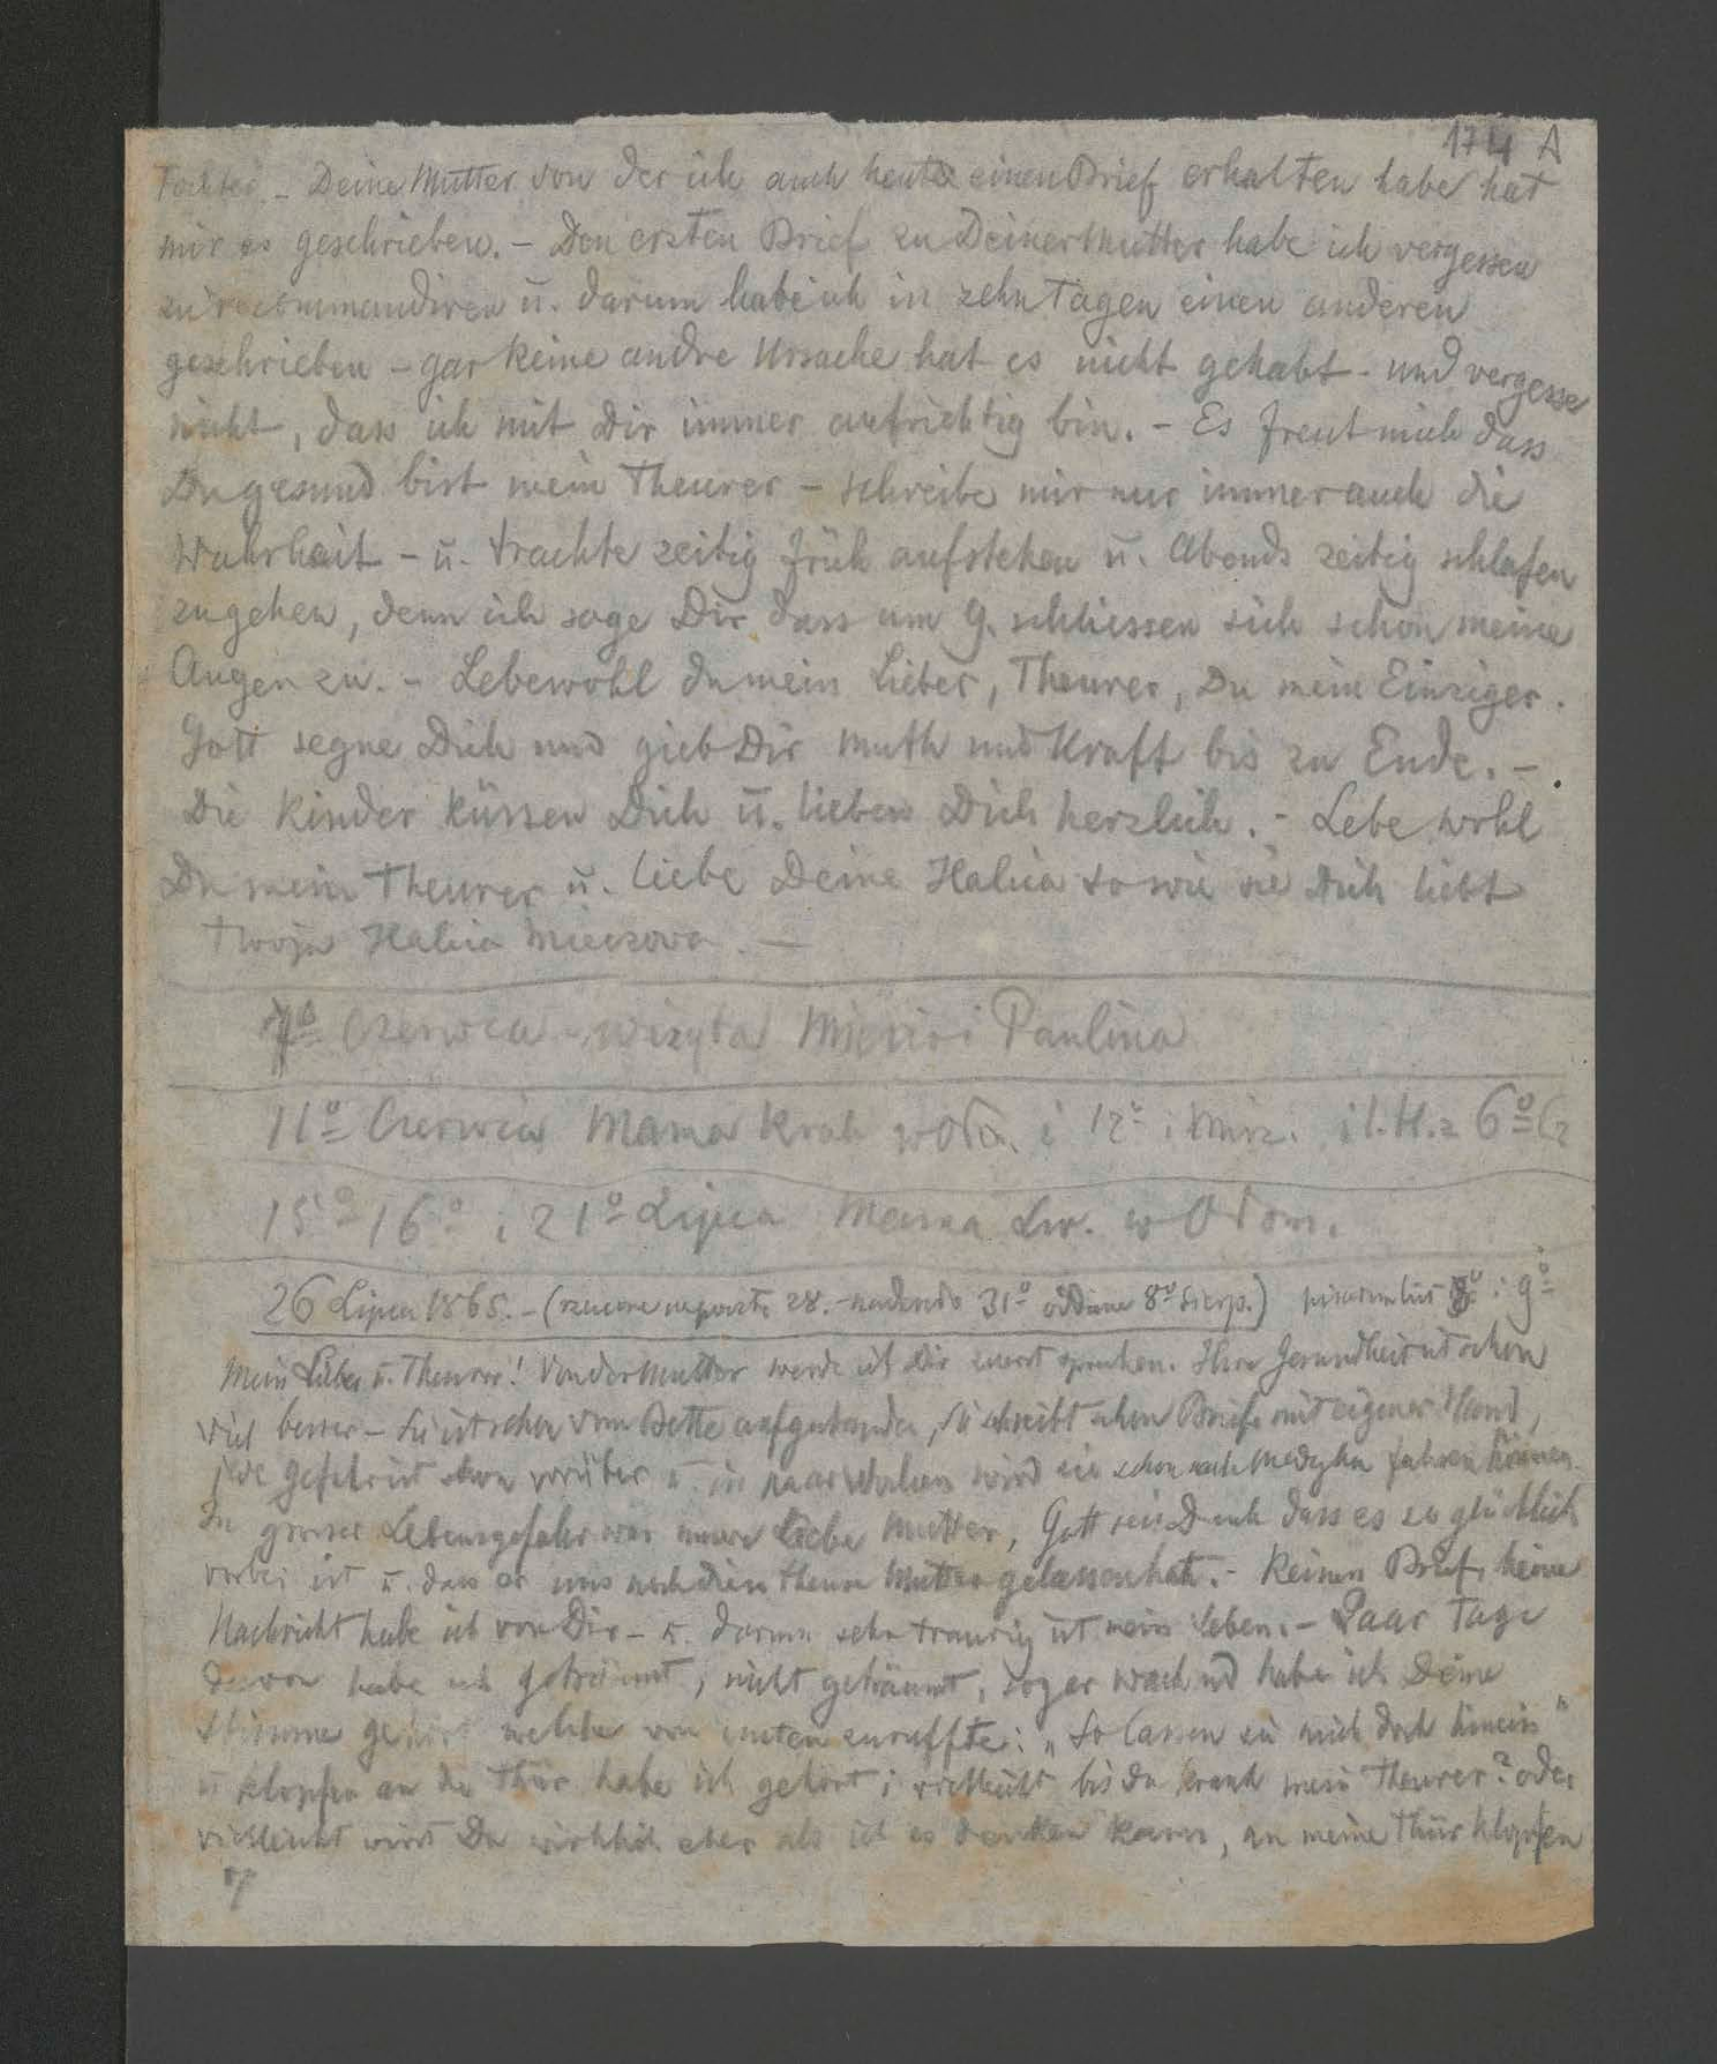 174 A
Tochter. – Deine Mutter von der ich auch heute einen Brief erhalten habe hat
mir es geschrieben. – Den ersten Brief zu Deiner Mutter habe ich vergessen
zu recommandiren u. darum habe ich in zehn Tagen einen anderen
geschrieben – gar keine andre Ursache hat es nicht gehabt – und vergesse
nicht, dass ich mit Dir immer aufrichtig bin. – Es freut mich dass
Du gesund bist mein Theurer – schreibe mir nur immer auch die
Wahrheit – u. trachte zeitig früh aufstehen u. Abends zeitig schlafen
zugehen, denn ich sage Dir dass um 9. schliessen sich schon meine
Augen zu. – Lebewohl du mein Lieber, Theurer, Du mein Einziger.
Gott segne Dich und gieb Dir Muth und Kraft bis zu Ende. –
Die Kinder küssen Dich u. lieben Dich herzlich. – Lebe wohl
Du mein Theurer u. liebe Deine Halka so wie sie Dich liebt
twoja Halka –
7º Czerwca – wizyta i Paulina
11º Czerwca Mama Krak w Oło. i 12º i 6º Cz
15º 16º i 21º Lipca Mama Lw. w Ołom.
26 Lipca 1865. – ( 28. – 31º oddane 8º Sierp.) 8º i 9º
Mein Lieber u. Theurer! Von der Mutter werde ich Dir zuerst sprechen. Ihre Gesundheit ist schon
viel besser – Sie ist schon vom Bette aufgestanden, Sie schreibt schon Briefe mit eigener Hand,
jede Gefahr ist schon vorüber u. in paar Wochen wird sie schon nach Medyka fahren können.
In grosser Lebensgefahr war unsere liebe Mutter, Gott sei Dank dass es so glücklich
vorbei ist u. dass er uns noch diese theure Mutter gelassen hat. – Keinen Brief, keine
Nachricht habe ich von Dir – u. darum sehr traurig ist mein Leben. – Paar Tage
davon habe ich geträumt, nicht geträumt, sogar wachend habe ich Deine
Stimme gehört welche von unten zuruffte: „So lassen sie mich doch hinein"
u klopfen an die Thür habe ich gehört; vielleicht bis du krank mein Theurer? oder
vielleicht wirst Du wirklich eher als ich es denken kann, an meine Thür klopfen